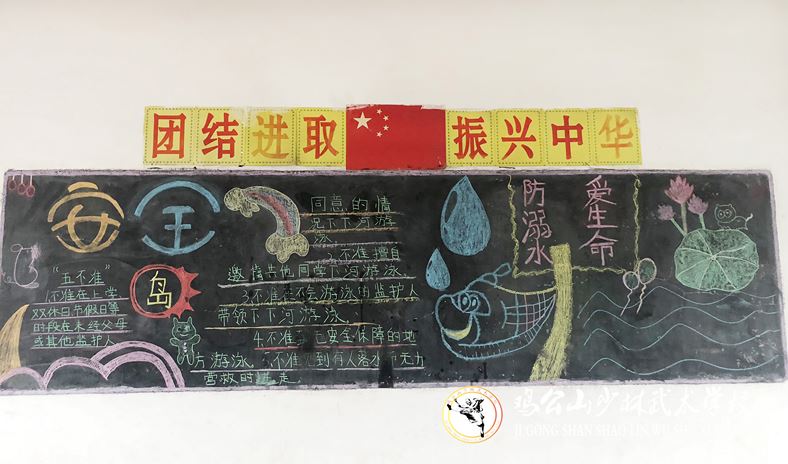 团结进取 振兴中华
安全
岛
"五不准"
1不准在上学
双休日节假日等
时段在未经父母
或其他监护人
同意的情
况下下河游
泳
不准擅自
邀指其他同学下河游泳
3不准 不会游泳的监护人
带领下下河游泳
4不准 安全保障的地
方游泳 不准 到有人落水 无力
营救时 走
防溺水
爱生命
鸡公山少林武术学
JI GONG SHAN SHAO LIN WU SHU